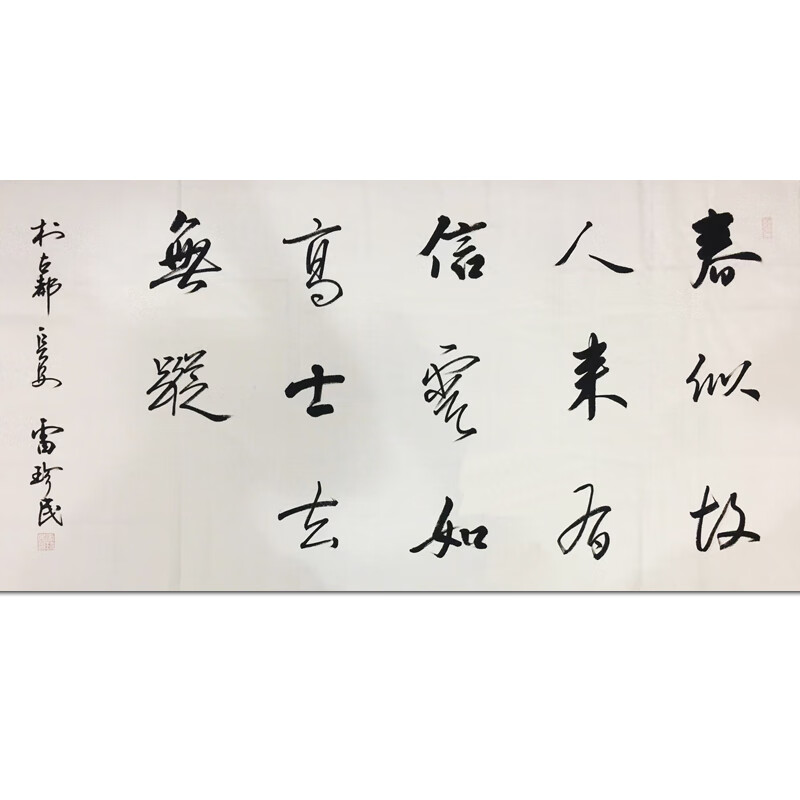 春似故
人来有
信雲如
高士去
無蹤
於古都長安 雷珍民